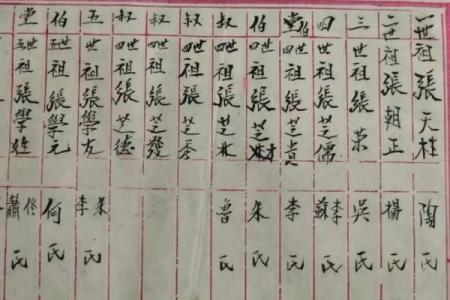 一世祖張天柱 陶氏
二世祖張朝正 楊氏
三世祖張榮 吳氏
四世祖張芝儒 李蘇氏
堂伯四世祖張芝貴 李氏
伯四世祖張芝林 朱氏
叔四世祖張芝 魯氏
叔四世祖張芝秀
叔四世祖張芝發
叔四世祖張芝德
五世祖張學友 朱李氏
伯五世祖張學元 何氏
堂五世祖張學 佟蕭氏